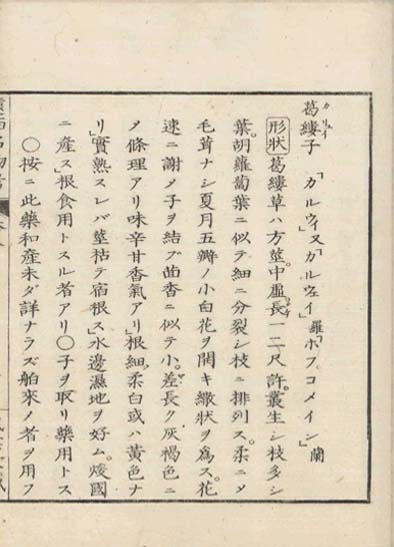 葛縷子 「カルウィ」又「カルウェイ」羅「ホフコメイン」蘭
カリュイ
形狀 葛縷草ハ方莖。中虛。長一二尺許。叢生シ枝多シ
葉。胡蘿蔔葉ニ似テ細ニ分裂シ枝ニ排列ス。柔ニメ
毛茸ナシ夏月五瓣ノ小白花ヲ開キ繖狀ヲ爲ス。花
速ニ謝メ子ヲ結ブ茴香ニ似テ小。差長ク灰褐色ニ
メ條理アリ味辛甘香氣アリ」根細。柔白或ハ黃色ナ
リ」實熟スレバ莖枯テ宿根ス」水邊濕地ヲ好ム。㷟國
ニ產ス」根食用トスル者アリ〇子ヲ取リ藥用トス
〇按ニ此藥和產未ダ詳ナラズ舶來ノ者ヲ用フ